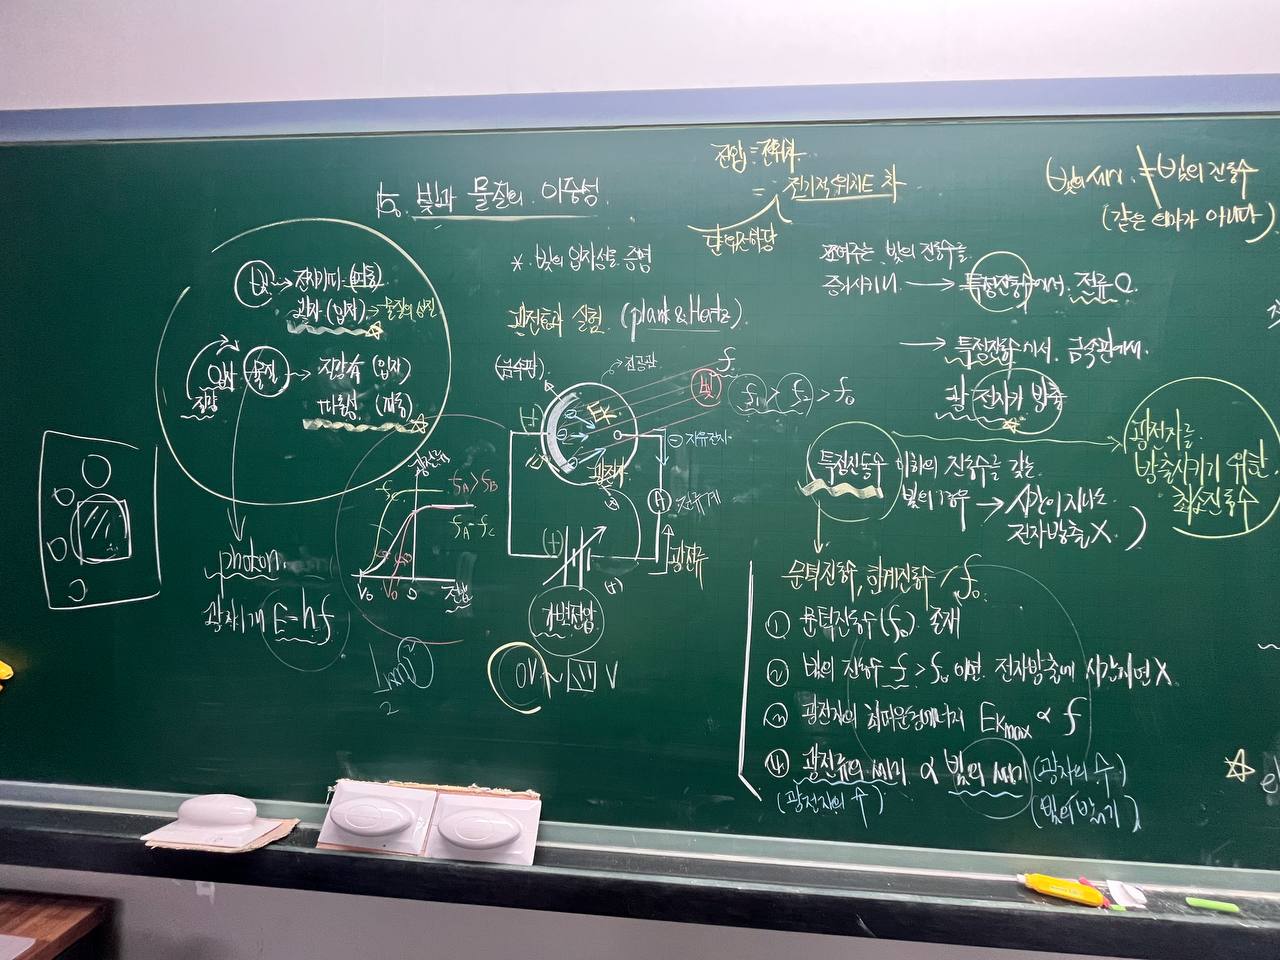 15. 빛과 물질의 이중성
전압 = 전위차
= 전기적 위치E 차
단위전하당
빛의 세기 ≠ 빛의 진동수
(같은 의미가 아니다)
빛 → 전자기파 (파동)
광자 (입자) → 물질의 성질
물질 → 질량有 (입자)
(파동)
입자
질량
photon
광자 1개 E=hf
* 빛의 입자성을 증명
광전효과 실험 (plank & Hertz)
(금속판)
진공관
f
빛
f₁ > f₂ > f₀
(+)
Ek
광전자
⊖ 자유전자
전류계
광전류
(+)
(+)
가변전압
0V ~ V
광전류
fA > fB
fA = fC
V₀
V₀
0
전압
2
쪼여주는 빛의 진동수를
증가시키니 → 특정진동수에서 전류 O
→ 특정진동수에서 금속판에서
광전자가 방출
특정진동수 이하의 진동수를 갖는
빛의 경우 → 시간이 지나도
전자방출 X )
광전자를
방출시키기 위한
최소진동수
문턱진동수, 한계진동수 / f₀
① 문턱진동수(f₀) 존재
② 빛의 진동수 f > f₀ 이면 전자방출에 시간지연 X
③ 광전자의 최대운동에너지 Ekmax ∝ f
④ 광전류의 세기 ∝ 빛의 세기 (광자의 수)
(광전자의 수) (빛의 밝기)